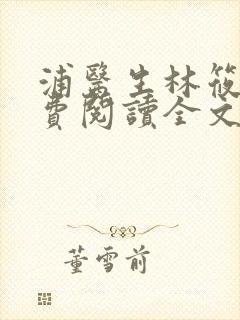 浦醫生林筱
費閱讀全文
董雪前